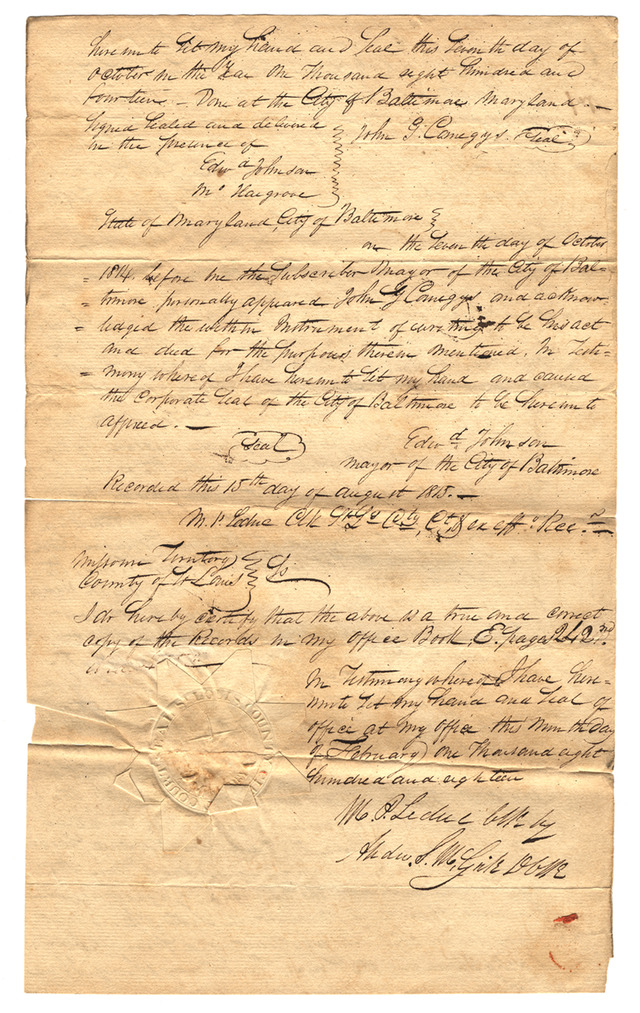 hereunto Set my hand and Seal this Seventh day of
October in the Year One Thousand eight hundred and
fourteen — Done at the City of Baltimore Maryland —
Signed Sealed and delivered
in the presence of
John G Comegys Seal
Edwd Johnson
Wm Hargrove
State of Maryland, City of Baltimore
on the Seventh day of October
1814 before me the Subscriber Mayor of the City of Bal-
=timore personally appeared John G Comegys and acknow
=ledged the within Instrument of writing to be his act
and deed for the purposes therein mentioned. In Testi=
=mony whereof I have hereunto Set my hand and caused
the Corporate Seal of the City of Baltimore to be hereunto
affixed. —
Seal
Edwd Johnson
Mayor of the City of Baltimore
Recorded this 15th day of August 1815. —
M. P. Leduc Clk & ex off: Rec.
Missouri Territory
County of St Louis Ss
I do hereby certify that the above is a true and correct
copy of the Records in my Office Book, E. pages 242
In Testimony whereof I have here-
unto Set my hand and Seal of
office at My Office this Ninth day
of February one Thousand eight
hundred and eighteen
M. P. Leduc Clk by